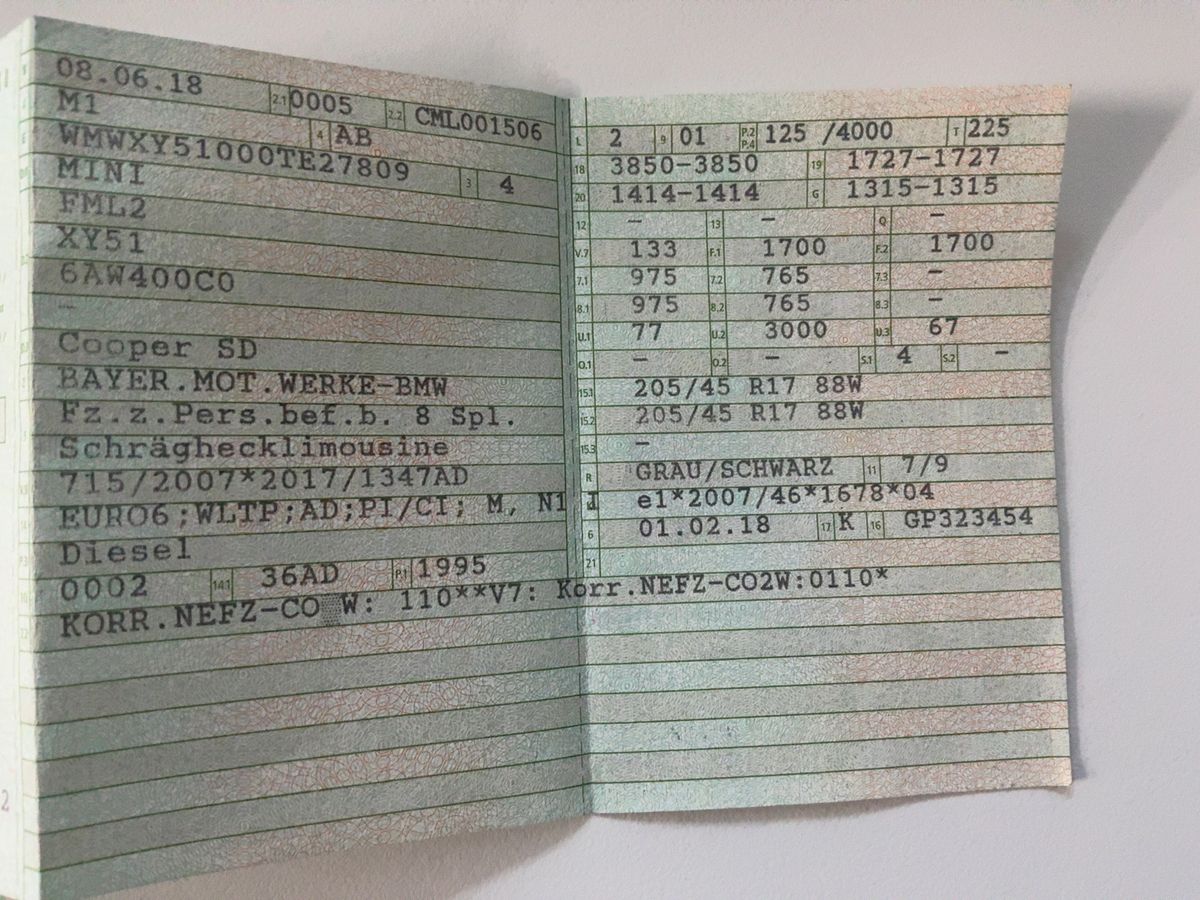 08.06.18 2.1 0005 2.2 CML001506
M1 4 AB
WMWXY51000TE27809 3 4
MINI
FML2
XY51
6AW400C0
—
Cooper SD
BAYER.MOT.WERKE-BMW
Fz.z.Pers.bef.b. 8 Spl.
Schräghecklimousine
715/2007*2017/1347AD
EURO6;WLTP;AD;PI/CI; M, N1 I
Diesel
0002 14.1 36AD P.1 1995
KORR.NEFZ-CO W: 110**V7: Korr.NEFZ-CO2W:0110*
L 2 9 01 P.2 P.4 125 /4000 T 225
18 3850-3850 19 1727-1727
20 1414-1414 G 1315-1315
12 – 13 – Q –
V.7 133 F.1 1700 F.2 1700
7.1 975 7.2 765 7.3 –
8.1 975 8.2 765 8.3 –
U.1 77 U.2 3000 U.3 67
O.1 – O.2 – S.1 4 S.2 –
15.1 205/45 R17 88W
15.2 205/45 R17 88W
15.3 –
R GRAU/SCHWARZ 11 7/9
e1*2007/46*1678*04
6 01.02.18 17 K 16 GP323454
21
22
2